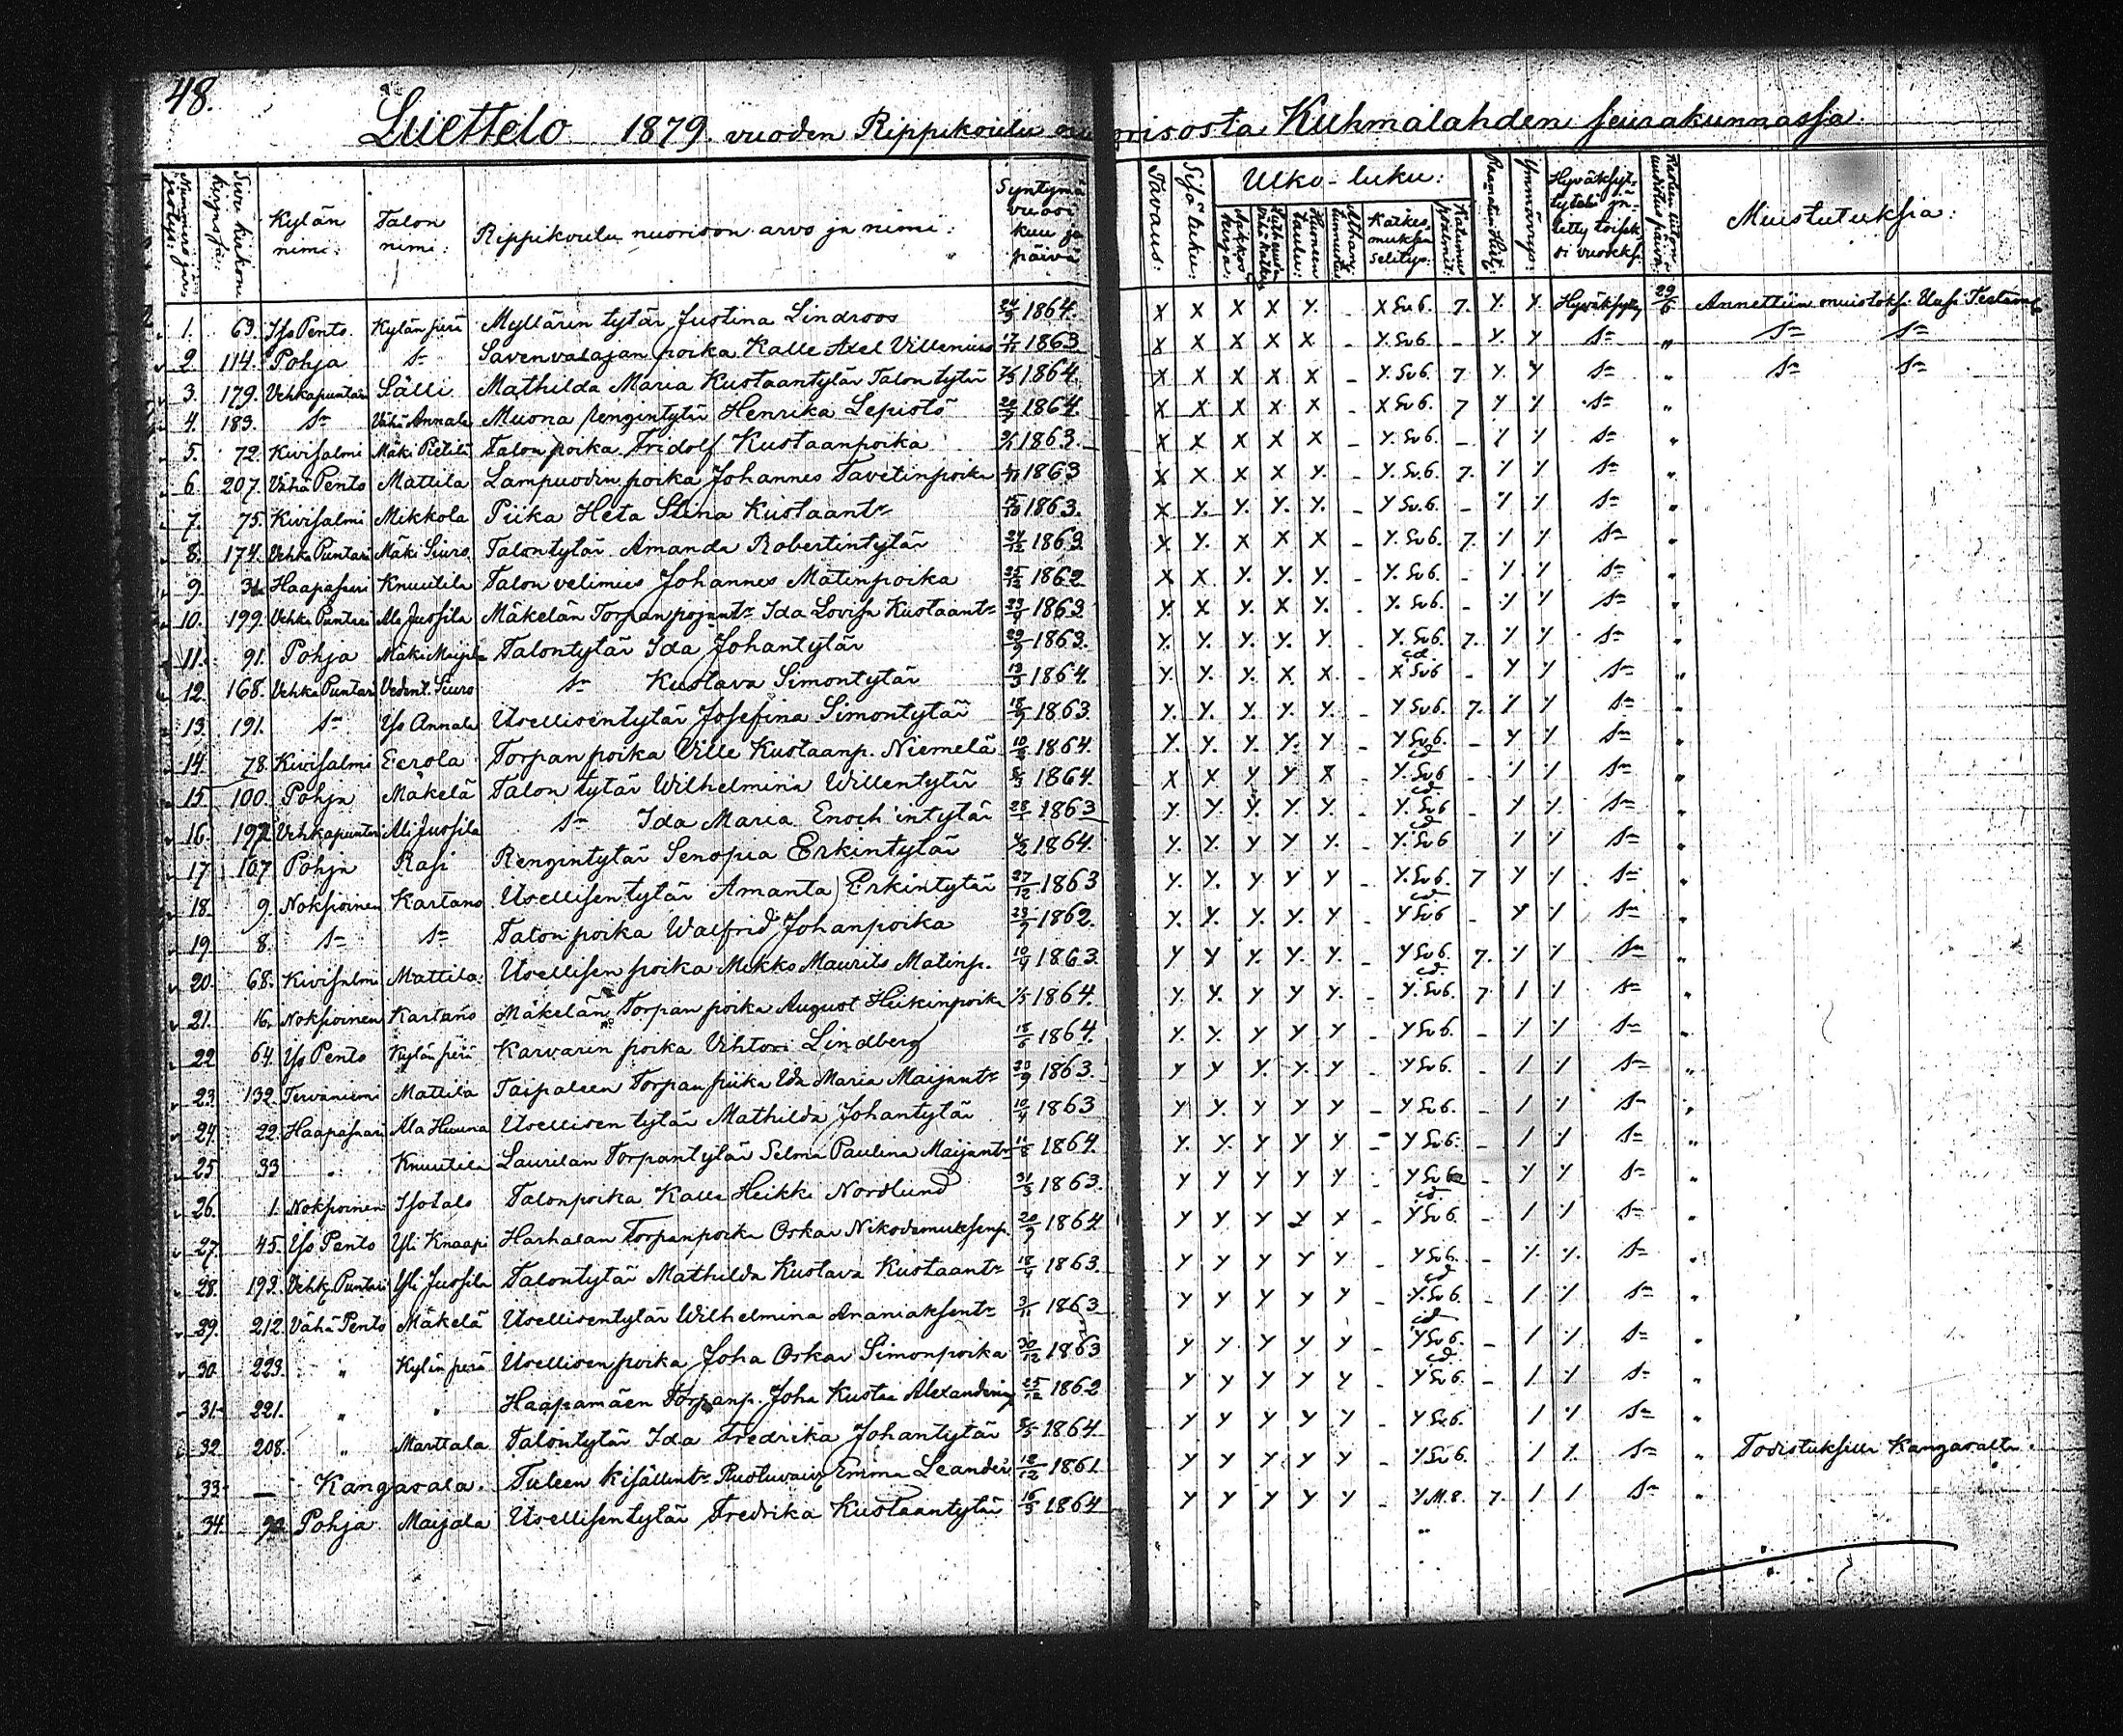 48.
Luettelo 1879 vuoden Rippikoulu nuorisosta Kuhmalahden seurakunnassa
Kylän nimi: Talon nimi: Rippikoulu nuorison arvo ja nimi: Syntymä vuosi kuu ja päivä Tavaus: Sisä luku: Ulko-luku: Ymmärrys: Muistutuksia:
1. 63. Iso Pento Kylän perä Myllärin tytär Justina Lindroos 24/3 1864. X X X X Y. - X Sv 6. 7. Y. Y. Hyväksytty 29/6 Annettiin muistoksi Uusi Testam
2. 114. Pohja sn Savenvalajan poika Kalle Axel Villenius 17/11 1863 X X X X X - Y. Sv 6 - Y. Y sn " sn sn
3. 179. Vehkapuntari Sälli Mathilda Maria Kustaantytär Talon tytär 1864. X X X X X - Y. Sv 6. 7 Y. Y sn " sn sn
4. 183. sn Vähä Annala Muona rengintytär Henrika Lepistö 1864. X X X X X - X Sv 6. 7 Y Y sn "
5. 72. Kivisalmi Mäki Pietilä Talon poika Fridolf Kustaanpoika 1863. X X X X X - Y. Sv 6. - Y Y sn "
6. 207. Vähä Pento Mattila Lampuodin poika Johannes Tavetinpoika 1863 X X X X Y. - Y. Sv 6. 7. Y Y sn "
7. 75. Kivisalmi Mikkola Piika Heta Stina Kustaantr 1863. X Y. Y. Y. Y. - Y Sv. 6. - Y Y sn "
8. 174. Vehka Puntari Mäki Siuro Talontytär Amanda Robertintytär 24/12 1863 X Y. X X X - Y. Sv 6. 7. Y Y sn "
9. Haapasaari Knuutila Talon velimies Johannes Matinpoika 25/12 1862 X X Y. Y. Y. - Y. Sv 6. - Y. Y sn "
10. 199. Vehka Puntari Ala Jussila Mäkelän Torpan pojantr Ida Lovisa Kustaantr 23/9 1863 Y. X Y. X Y. - Y. Sv 6. - Y Y sn "
11. 91. Pohja Mäki Maijala Talontytär Ida Johantytär 29/9 1863. Y. Y. Y. Y. Y. - Y. Sv 6. 7. Y Y sn "
12. 168. Vehka Puntari Vedent. Siuro sn Kustava Simontytär 13/3 1864. Y. Y. Y. X X. - X Sv 6 - Y Y sn "
13. 191. sn Iso Annala Itsellisentytär Josefina Simontytär 18/9 1863. Y. Y. Y. Y. Y. - Y Sv 6. 7. Y Y sn "
14. 78. Kivisalmi Eerola Torpan poika Ville Kustaanp. Niemelä 1864. Y. Y. Y. Y. Y - Y Sv 6. - Y Y sn "
15 100. Pohja Mäkelä Talon tytär Wilhelmina Willentytär 1864. X X Y Y X - Y. Sv 6 - Y Y sn "
16. 197 Vehkapuntari Ali Jussila sn Ida Maria Enoch intytär 1863 Y. Y. Y. Y. Y. - Y. Sv 6 - Y Y. sn "
17 107 Pohja Rasi Rengintytär Senopia Erkintytär 1864. Y. Y. Y Y Y. - Y. Sv 6 Y Y sn "
18. 9. Noksoinen Kartano Itsellisentytär Amanta Erkintytär 27/12 1863 Y. Y. Y Y Y - Y. Sv 6. 7 Y Y. sn "
19 8. sn sn Talon poika Walfrid Johanpoika 1862. Y. Y. Y. Y. Y - Y Sv 6 - Y Y sn "
20. 68. Kivisalmi Mattila. Itsellisen poika Mikko Maurits Matinp. 1863. Y Y Y. Y. Y. - Y Sv 6. 7. Y Y sn "
21. 16. Noksoinen Kartano Mäkelän Torpan poika August Heikinpoika 1/5 1864. Y. Y. Y Y Y. - Y. Sv 6. 7 Y Y sn "
22 64. Iso Pento Kylän perä Karvarin poika Vihtori Lindberg 18/6 1864. Y. Y. Y Y Y - Y Sv 6. - Y Y sn "
23. 132. Tervaniemi Mattila Taipaleen Torpan piika Eva Maria Maijantr 1863. Y Y Y. Y. Y - Y Sv 6. - Y Y sn "
24. 22. Haapasaari Ala Huuna Itsellisen tytär Mathilda Johantytär 1863 Y Y. Y Y Y - Y Sv 6. - Y Y. sn "
25 33 " Knuutila Laurilan Torpantytär Selma Paulina Maijantr 1864. Y. Y. Y Y Y - Y Sv 6. - Y Y. sn "
26. 1. Noksoinen Isotalo Talonpoika Kalle Heikki Nordlund 31/3 1863. Y Y Y Y Y - Y Sv 6 - Y Y sn "
27. 45. Iso Pento Yli Knaapi Harhalan Torpanpoika Oskar Nikodemuksenp. 1864 Y Y Y Y Y - Y Sv 6. - Y Y sn "
28. 193. Vehka Puntari Yli Jussila Talontytär Mathilda Kustava Kustaantr 18/9 1863. Y Y Y Y Y - Y Sv 6. - Y. Y. sn "
29. 212. Vähä Pento Mäkelä Itsellisentytär Wilhelmina Ananiaksentr 3/11 1863 Y Y Y Y Y - Y. Sv 6. - Y Y. sn "
30. 223. " Kylän perä Itsellisen poika Joha Oskar Simonpoika 30/12 1863 Y Y Y Y Y - Y Sv 6. - Y Y. sn "
31. 221. " " Haapamäen Torpanp. Joha Kustaa Alexanderinp 25/12 1862 Y Y Y Y Y - Y Sv 6. - Y Y sn "
32. 208. " Marttala Talontytär Ida Fredrika Johantytär 1864 Y Y Y Y Y - Y Sv 6. Y Y sn "
33. — Kangasala. Emma Leander 12/12 1861 Y Y Y Y Y - Y Sv 6. Y Y. sn " Todistuksella Kangasalta.
34. Pohja Maijala Itsellisentytär Fredrika Kustaantytär 16/3 1864 Y Y Y Y Y - Y M. 8. 7. Y Y sn "